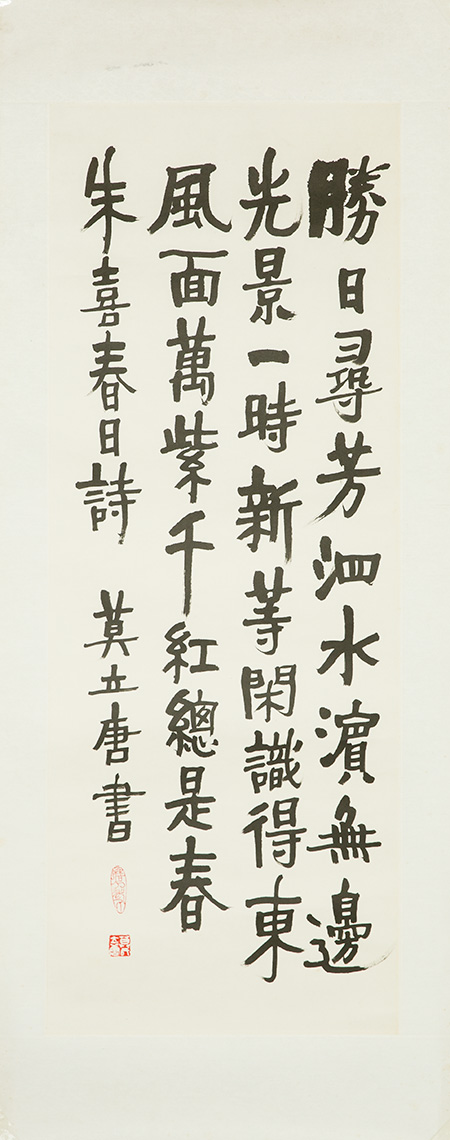 勝日尋芳泗水濱無邊
光景一時新等閑識得東
風面萬紫千紅總是春
朱喜春日詩 莫立唐書